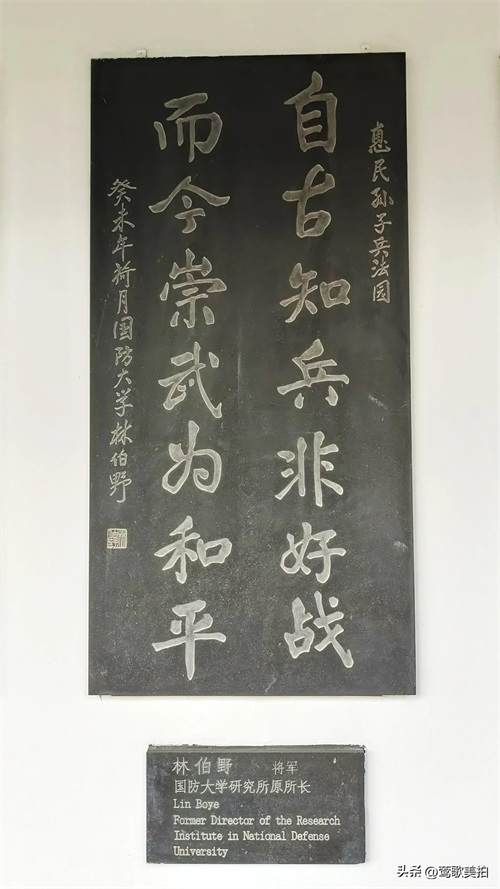 惠民孙子兵法园
自古知兵非好战
而今崇武为和平
癸未年荷月国防大学林伯野
林伯野 将军
国防大学研究所原所长
Lin Boye
Former Director of the Research
Institute in National Defense
University
头条@莺歌美拍